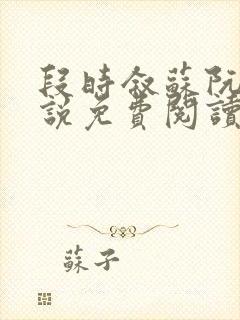 段時敘蘇阮
說免費閱讀
蘇子